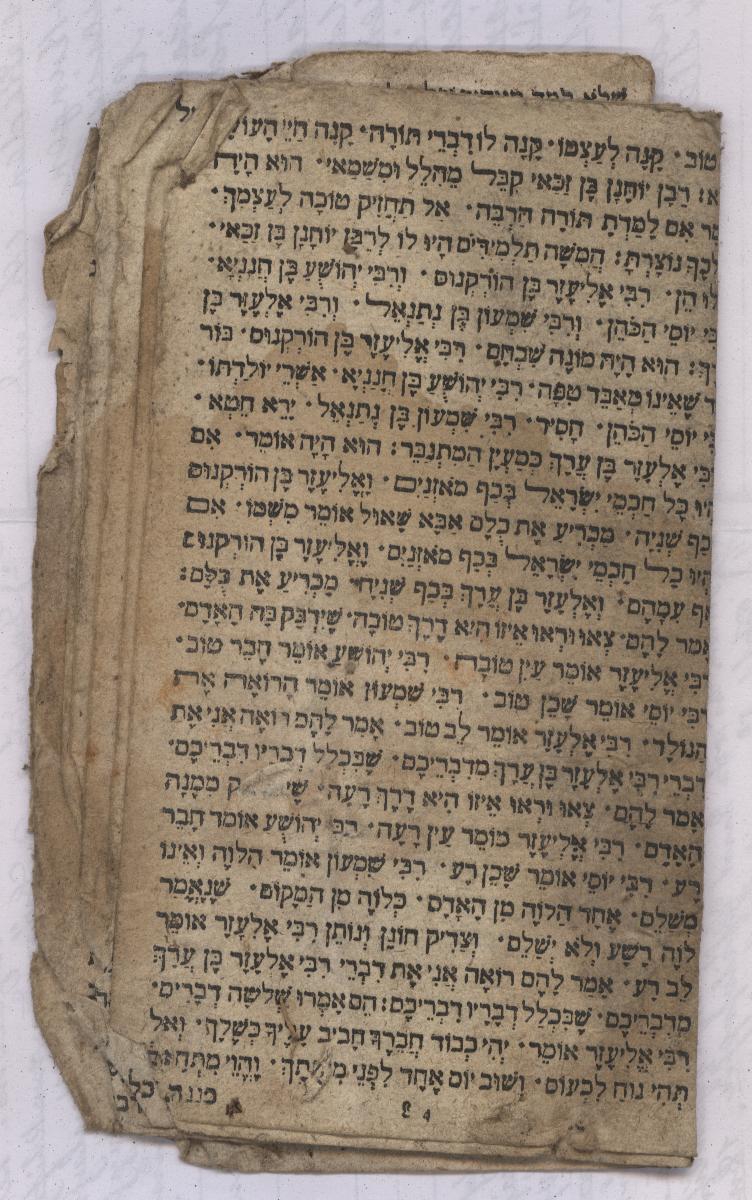 שלא למד
יל
טוב · קָנָה לְעַצְמוֹ · קָנָה לוֹ דִבְרֵי תוֹרָה · קָנָה חַיֵי הָעוֹלָ
א: רַבָּן יוֹחָנָן בֶּן זַכַּאי קִבֵּל מֵהִלֵל וּמִשַׁמַאי · הוּא הָיָה
מר אִם לָמַדְתָ תּוֹרָה הַרְבֵּה · אל תַחֲזִיק טוֹבָה לְעַצְמְךָ ·
לְכָךְ נוֹצָרְתָּ: חֲמִשָּׁה תַלְמִידִים הָיוּ לוֹ לְרַבָּן יוֹחָנָן בֶּן זַכַּאי ·
לוּ הֵן · רַבִּי אֱלִיעֶזֶר בֶּן הוֹרְקְנוֹס · וְרַבִּי יְהוֹשֻׁעַ בֶּן חֲנַנְיָא ·
בִּי יוֹסֵי הַכֹּהֵן · וְרַבִּי שִׁמְעוֹן בֶּן נְתַנְאֵל · וְרַבִּי אֶלְעָזָר בֶּן
רָךְ: הוּא הָיָה מוֹנֶה שִׁבְחָם · רַבִּי אֱלִיעֶזֶר בֶּן הוֹרְקְנוֹס · בּוֹר
ד שֶׁאֵינוֹ מְאַבֵּד טִפָּה · רַבִּי יְהוֹשֻׁעַ בֶּן חֲנַנְיָא · אַשְׁרֵי יוֹלַדְתּוֹ ·
בִּי יוֹסֵי הַכֹּהֵן · חָסִיד · רַבִּי שִׁמְעוֹן בֶּן נְתַנְאֵל · יְרֵא חֵטְא ·
רַבִּי אֶלְעָזָר בֶּן עֲרָךְ כְּמַעְיָן הַמִתְגַבֵּר: הוּא הָיָה אוֹמֵר · אִם
הָיוּ כָּל חַכְמֵי יִשְׂרָאֵל בְּכַף מֹאזְנַיִם · וֶאֱלִיעֶזֶר בֶּן הוֹרְקְנוֹס
כַף שְׁנִיָּה · מַכְרִיעַ אֶת כֻּלָּם אַבָּא שָׁאוּל אוֹמֵר מִשְּׁמוֹ · אִם
הָיוּ כָל חַכְמֵי יִשְׂרָאֵל בְּכַף מֹאזְנַיִם · וֶאֱלִיעֶזֶר בֶּן הוֹרְקְנוֹס
אַף עִמָּהֶם · וְאֶלְעָזָר בֶּן עֲרָךְ בְּכַף שְׁנִיָּה · מַכְרִיעַ אֶת כֻּלָּם:
אָמַר לָהֶם · צְאוּ וּרְאוּ אֵיזוֹ הִיא דֶרֶךְ טוֹבָה · שֶׁיִּדְבַּק בָּהּ הָאָדָם ·
רַבִּי אֱלִיעֶזֶר אוֹמֵר עַיִן טוֹבָה · רַבִּי יְהוֹשֻׁעַ אוֹמֵר חָבֵר טוֹב ·
רַבִּי יוֹסֵי אוֹמֵר שָׁכֵן טוֹב · רַבִּי שִׁמְעוֹן אוֹמֵר הָרוֹאֶה אֶת
הַנּוֹלָד · רַבִּי אֶלְעָזָר אוֹמֵר לֵב טוֹב · אָמַר לָהֶם רוֹאֶה אֲנִי אֶת
דִּבְרֵי רַבִּי אֶלְעָזָר בֶּן עֲרָךְ מִדִּבְרֵיכֶם · שֶׁבִּכְלַל דְּבָרָיו דִּבְרֵיכֶם ·
אָמַר לָהֶם · צְאוּ וּרְאוּ אֵיזוֹ הִיא דֶרֶךְ רָעָה · שֶׁיִּ ק מִמֶּנָּה
הָאָדָם · רַבִּי אֱלִיעֶזֶר אוֹמֵר עַיִן רָעָה · רַבִּי יְהוֹשֻׁעַ אוֹמֵר חָבֵר
רָע · רַבִּי יוֹסֵי אוֹמֵר שָׁכֵן רָע · רַבִּי שִׁמְעוֹן אוֹמֵר הַלֹּוֶה וְאֵינוֹ
מְשַׁלֵּם · אֶחָד הַלֹּוֶה מִן הָאָדָם · כְּלֹוֶה מִן הַמָּקוֹם · שֶׁנֶּאֱמַר
לֹוֶה רָשָׁע וְלֹא יְשַׁלֵּם · וְצַדִּיק חוֹנֵן וְנוֹתֵן רַבִּי אֶלְעָזָר אוֹמֵר
לֵב רָע · אָמַר לָהֶם רוֹאֶה אֲנִי אֶת דִּבְרֵי רַבִּי אֶלְעָזָר בֶּן עֲרָךְ
מִדִּבְרֵיכֶם · שֶׁבִּכְלַל דְּבָרָיו דִּבְרֵיכֶם: הֵם אָמְרוּ שְׁלֹשָׁה דְבָרִים ·
רַבִּי אֱלִיעֶזֶר אוֹמֵר · יְהִי כְבוֹד חֲבֵרָךְ חָבִיב עָלֶיךָ כְּשֶׁלָּךְ · וְאַל
תְּהִי נוֹחַ לִכְעוֹס · וְשׁוּב יוֹם אֶחָד לִפְנֵי מִיתָתָךְ · וֶהֱוֵי מִתְחַמֵּם
כנגד
4